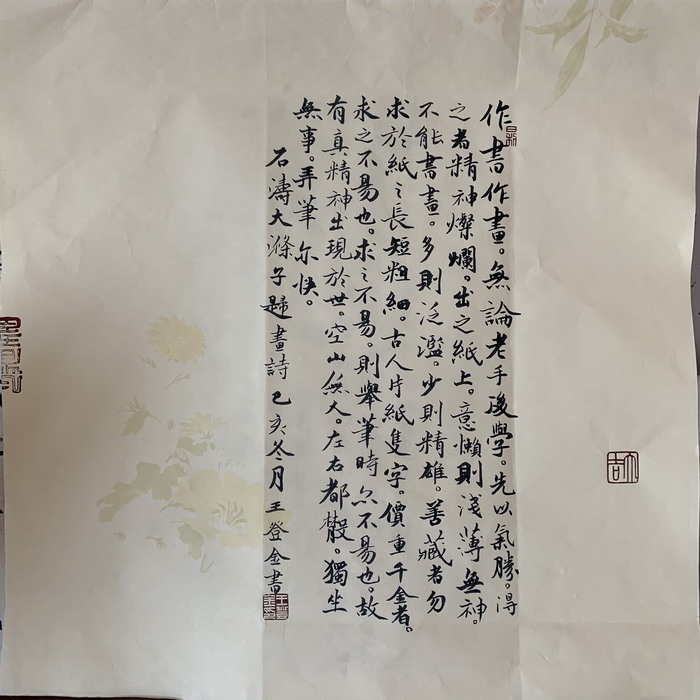 作書作畫。無論老手後學。先以氣勝。得
之者精神燦爛。出之紙上。意懶則淺薄無神。
不能書畫。多則泛濫。少則精雄。善藏者勿
求於紙之長短粗細。古人片紙隻字。價重千金者。
求之不易也。求之不易。則舉筆時亦不易也。故
有真精神出現於世。空山無人。左右都散。獨坐
無事。弄筆亦快。
石濤大滌子題畫詩 己亥冬月王登金書